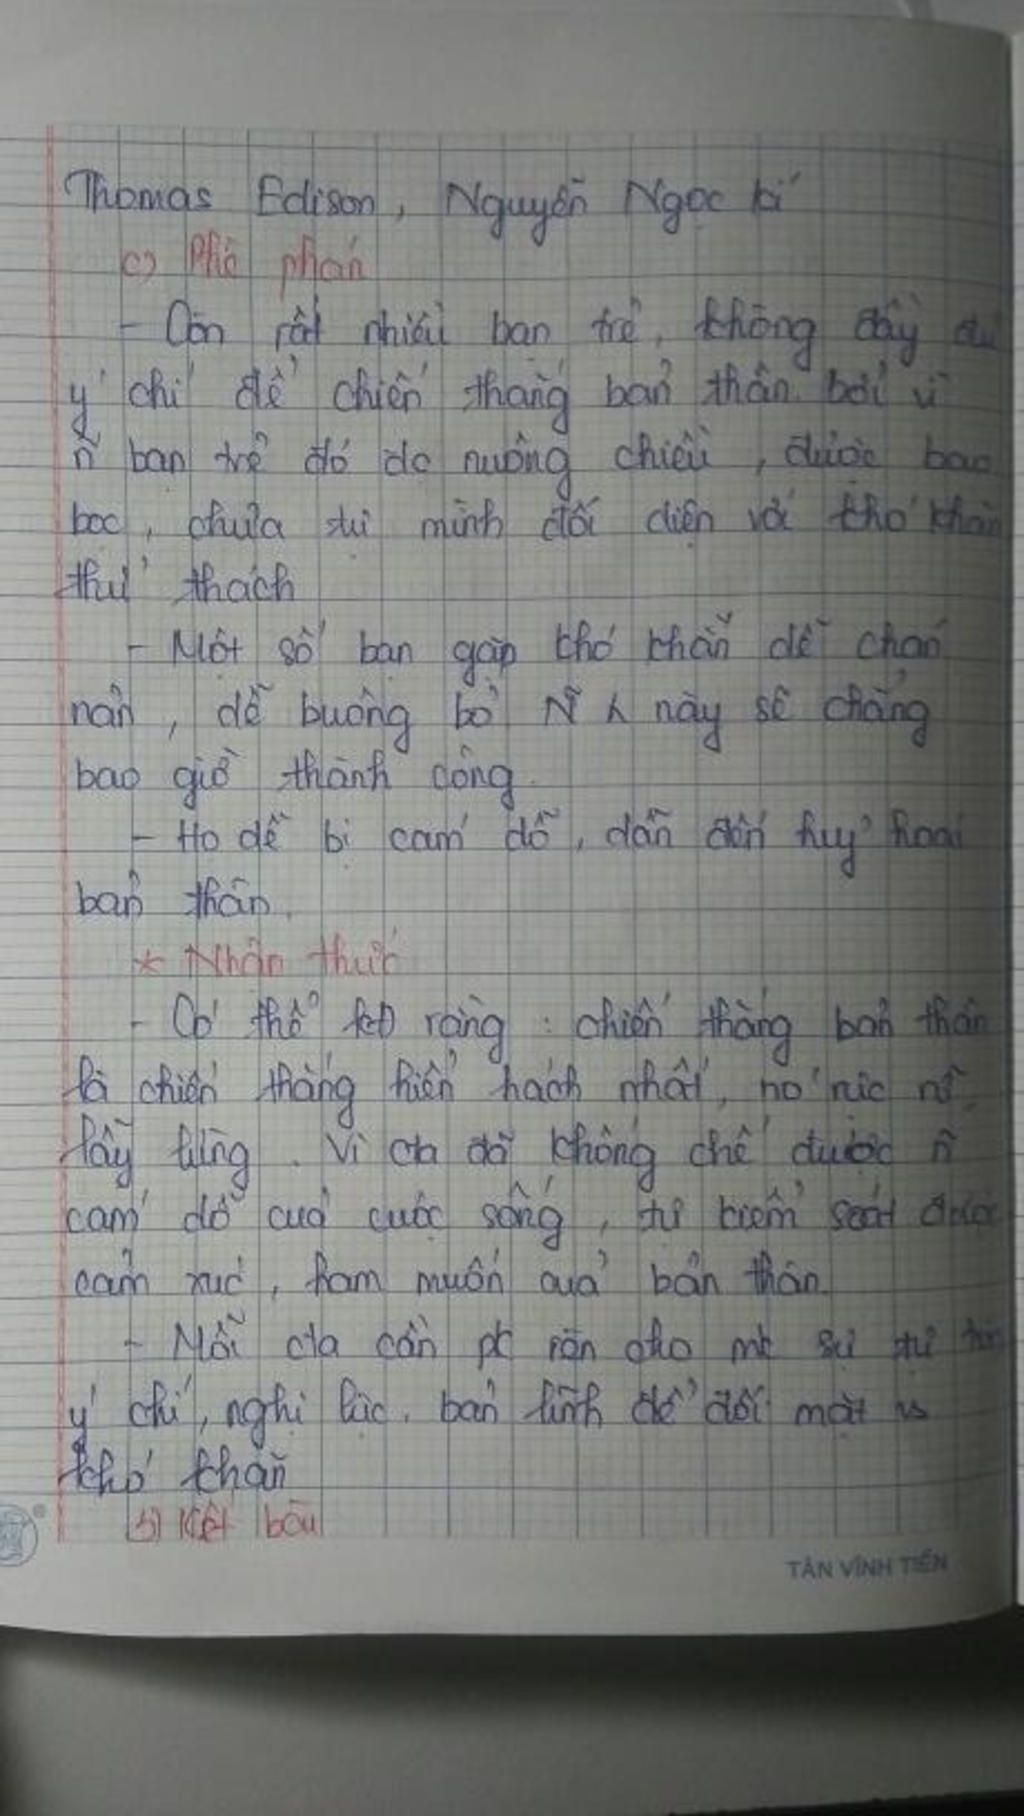 Thomas Edison, Nguyễn Ngọc kí
c) Phê phán
- Còn rất nhiều bạn trẻ, không đầy đủ
ý chí để chiến thắng bản thân. bởi vì
n~ bạn trẻ đó dc nuông chiều, được bao
bọc, chưa tự mình đối diện với khó khăn
thử thách
- Một số bạn gặp khó khăn dễ chán
nản, dễ buông bỏ N~ này sẽ chẳng
bao giờ thành công.
- Họ dễ bị cám dỗ, dẫn đến huỷ hoại
bản thân.
* Nhận thức
- Có thể kđ rằng: chiến thắng bản thân
là chiến thắng hiển hách nhất, nó rực rỡ
lẫy lừng. Vì cta đã khống chế được n~
cám dỗ của cuộc sống, tự kiểm soát được
cảm xúc, ham muốn của bản thân.
- Mỗi cta cần pk rèn cho mk sự tự tin
ý chí, nghị lực, bản lĩnh để đối mặt vs
khó khăn
3) Kết bài
TÂN VĨNH TIẾN